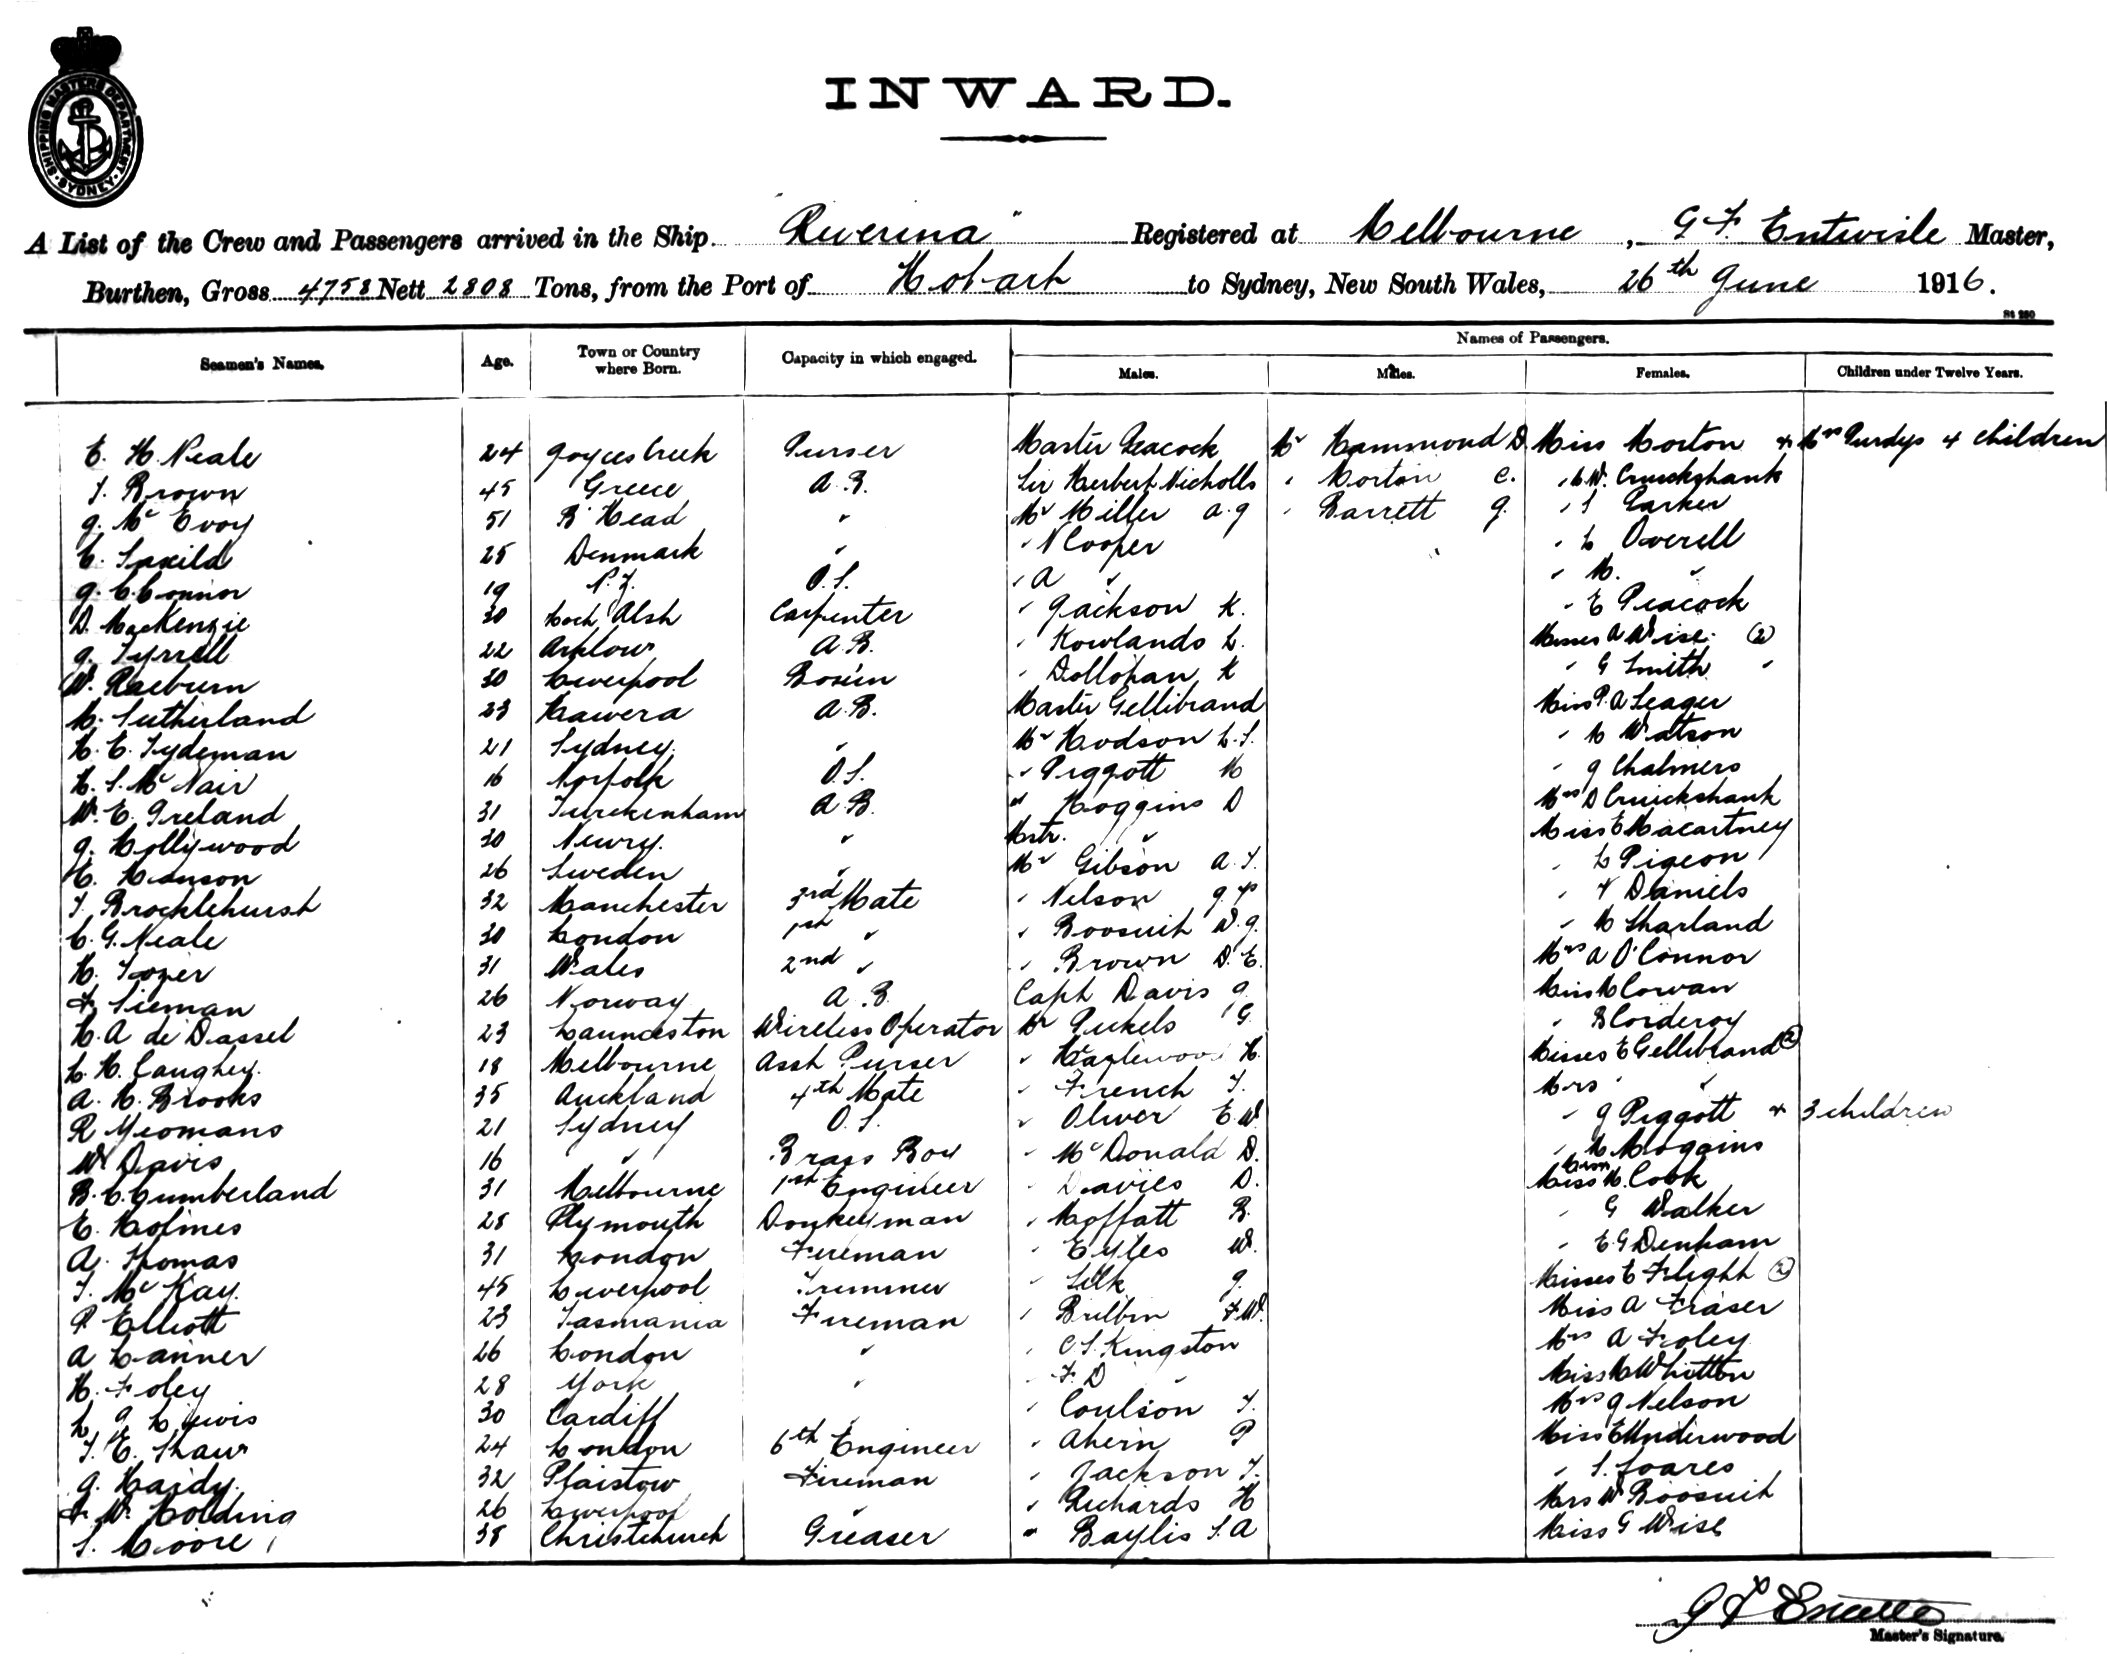 SHIPPING MASTERS DEPARTMENT
SYDNEY
INWARD.
A List of the Crew and Passengers arrived in the Ship "Riverina" Registered at Melbourne, G F. Entwisle Master,
Burthen, Gross 4758 Nett 2808 Tons, from the Port of Hobart to Sydney, New South Wales, 26th June 1916.
Names of Passengers.
Seamen's Names. Age. Town or Country where Born. Capacity in which engaged. Males. Males. Females. Children under Twelve Years.
E. H. Neale 24 Joyces Creek Purser Master Peacock Mr Hammond D. Miss Morton & Mrs Purdys 4 children
T. Brown 45 Greece A.B. Sir Herbert Nicholls " Morton C. " W. Cruickshank
J. McEvoy 51 B. Head " Mr Miller A.J " Barrett J. " Parker
C. Saxild 25 Denmark " " N Cooper " L Overell
J. C. Connor 19 N.Z. O.S. " A " " M. "
D. MacKenzie 30 Loch Alsh Carpenter " Jackson K. " E Peacock
J. Tyrrell 22 Arklow A.B. " Rowlands L. Misses A Wise (2)
W. Raeburn 30 Liverpool Bosun " Dollohan K " G Smith "
M. Sutherland 23 Hawera A.B. Master Gellibrand Miss P. A Seager
H. C. Tydeman 21 Sydney " Mr Hodson L.S. " M Watson
H. S. McNair 16 Norfolk O.S. " Piggott M " J Chalmers
W. E. Ireland 31 Twickenham A.B. " Hoggins D Mrs D Cruickshank
J. Hollywood 30 Newry " Mstr. " Miss E Macartney
C. Hanson 26 Sweden " Mr Gibson A.T. " L Pigeon
T. Brocklehurst 32 Manchester 3rd Mate " Nelson J. " Daniels
C. G. Neale 30 London 1st " " Boosuit W.J. " M Sharland
H. Toper 31 Wales 2nd " " Brown D.E. Mrs A O'Connor
F. Sieman 26 Norway A.B. Capt Davis J. Miss M Cowan
H. A de Dassel 23 Launceston Wireless Operator Mr Pukels G. " B Corderoy
L. H. Caughey. 18 Melbourne Asst Purser " Hazlewood H. Misses E Gellibrand (2)
A. H. Brooks 35 Auckland 4th Mate " French T. Mrs "
R Yeomans 21 Sydney O.S. " Oliver E.W. " J Piggott & 3 children
W Davis 16 " Brass Boy " McDonald D. " M Hoggins
B. C. Cumberland 31 Melbourne 1st Engineer " Davies D. Miss M. Cook
E. Holmes 28 Plymouth Donkeyman " Moffatt B. " G Walker
A. Thomas 31 London Fireman " Eyles W. " E G Denham
T. McKay. 45 Liverpool Trimmer " Silk J. Misses E Flight (2)
P Elliott 23 Tasmania Fireman " F.W. Miss A Fraser
A Lanner 26 London " " C.S. Kingston Mrs A Foley
H. Foley 28 York " " F. D " Miss M Whitton
L J Lewis 30 Cardiff " " Coulson T. Mrs J Nelson
T. E. Shaw 24 London 6th Engineer " Ahern P Miss E Underwood
J. Hardy. 32 Plaistow Fireman " Jackson T. " S. Soares
F. W. Holding 26 Liverpool " " Richards H Mrs W Boosuit
S. Moore 38 Christchurch Greaser " Baylis S.A Miss G Wise
Master's Signature.